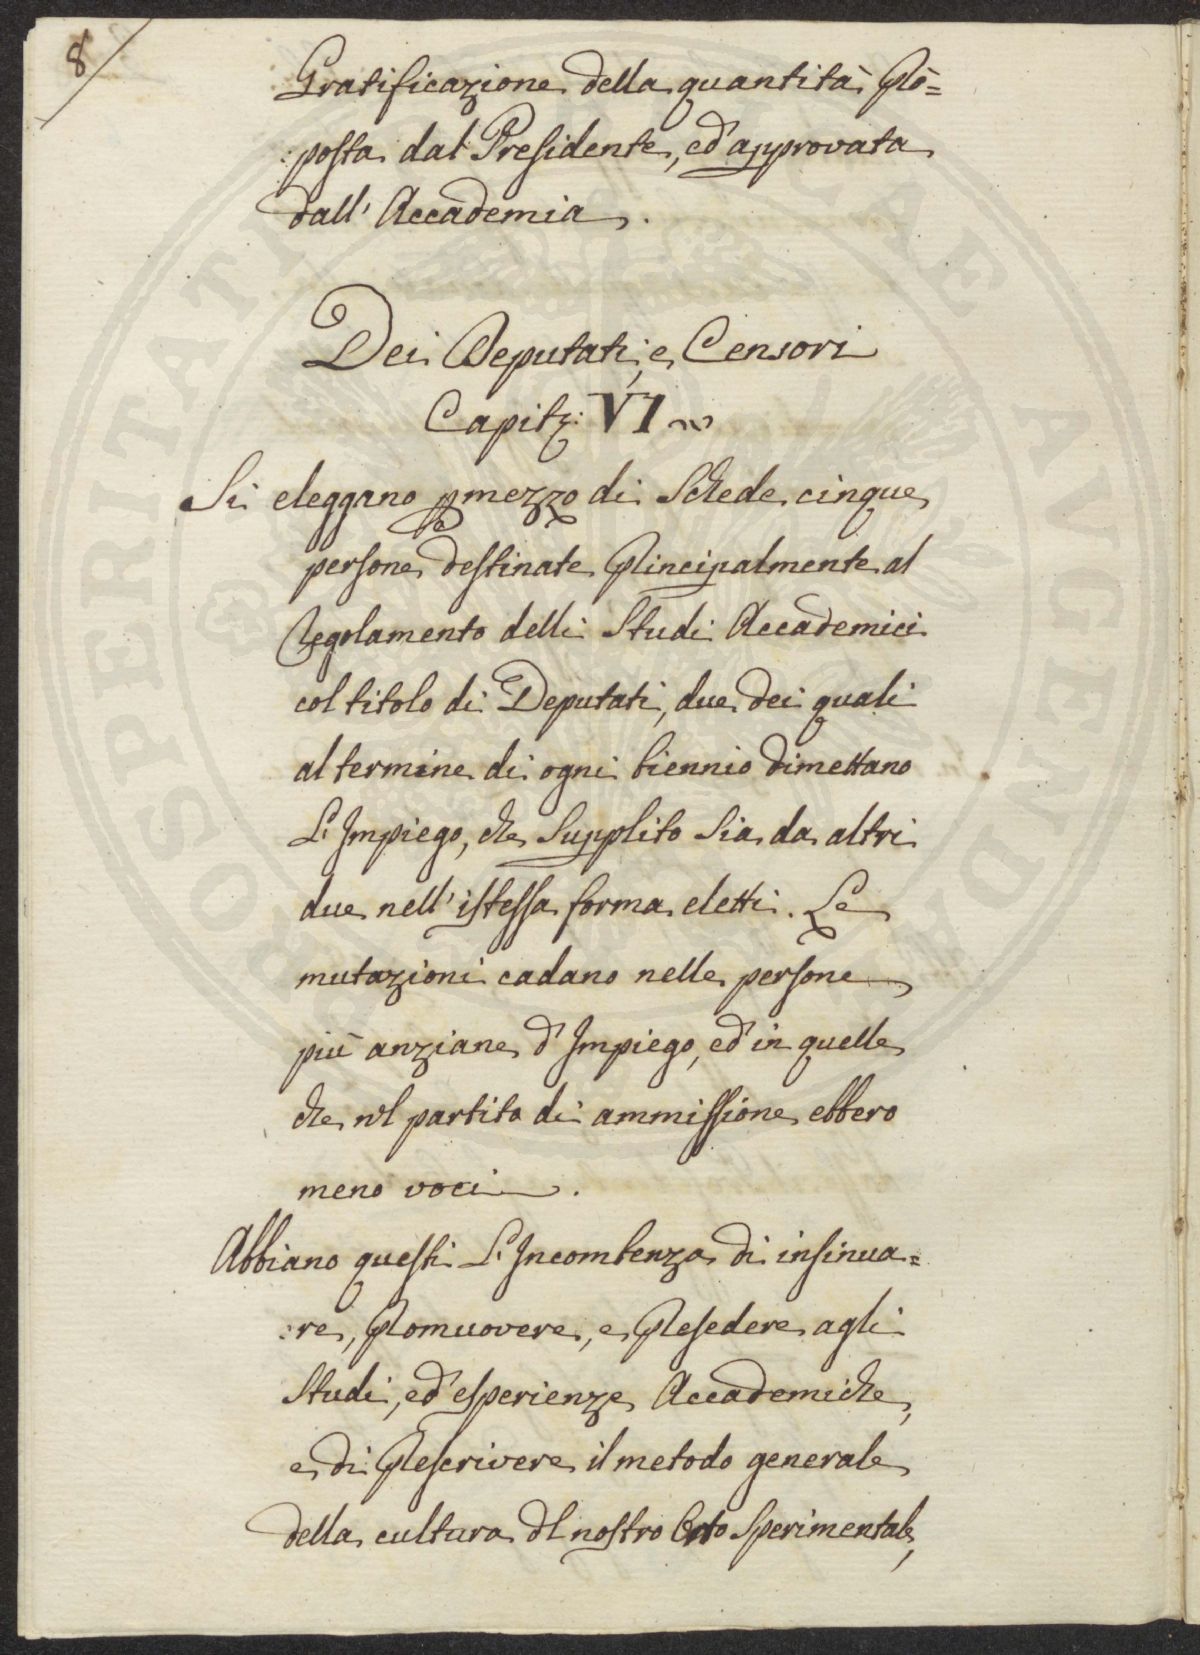 8
Gratificazione della quantità Pro=
:posta dal Presidente, ed' approvata
dall' Accademia.
Dei Deputati, e Censori
Capito: VI
Si eleggano p mezzo di Schede cinque
persone destinate Principalmente al
Regolamento delli Studi Accademici
col titolo di Deputati, due dei quali
al termine di ogni biennio dimettano
L'Impiego, che Supplito Sia da altri
due nell' istessa forma eletti. Le
mutazioni cadano nelle persone
più anziane d' Impiego, ed' in quelle
che nel partito di ammissione ebbero
meno voci.
Abbiano questi L'Incombenza di insinua=
:re, Promuovere, e Presedere agli
Studi, ed' esperienze Accademiche,
e di Prescrivere il metodo generale
della cultura del nostro Orto Sperimentale,
PROSPERITATI PUBLICAE AUGENDAE